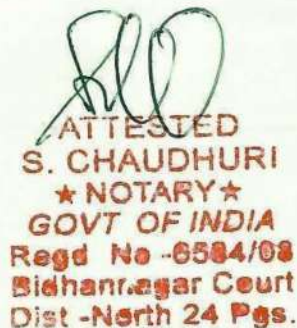 ATTESTED
S. CHAUDHURI
★ NOTARY ★
GOVT OF INDIA
Regd No -6584/08
Bidhannagar Court
Dist -North 24 Pgs.